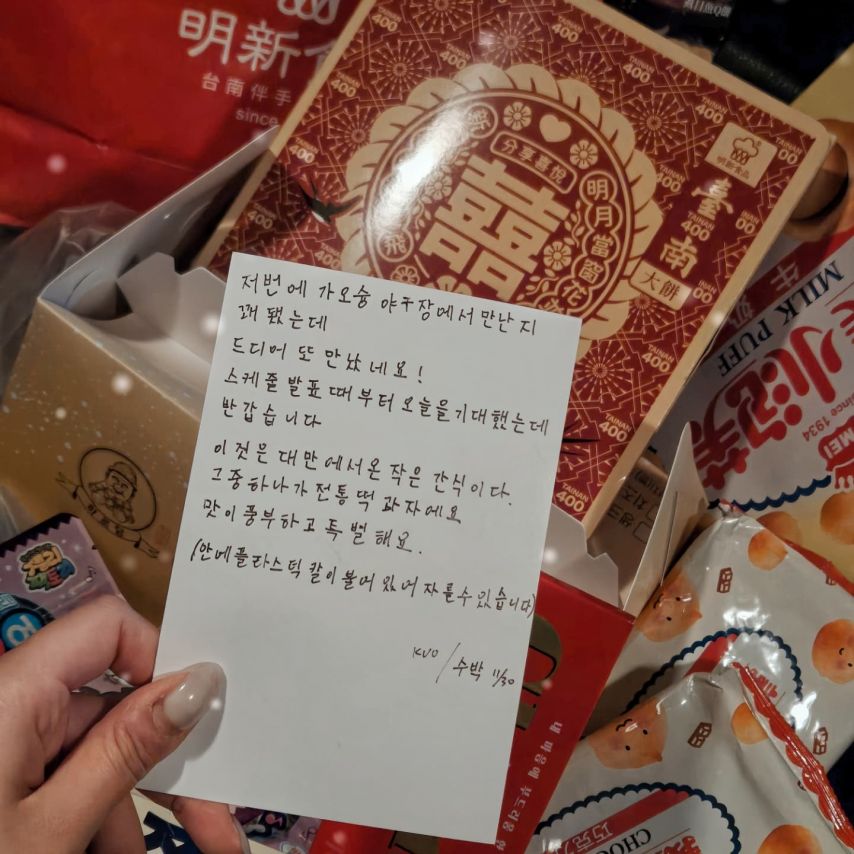 明新食
台南伴手
since
分享喜悅
囍
明月當留花
臺南
大餅
明新食品
TAINAN
400
저번에 가오슝 야구장에서 만난지
꽤 됐는데
드디어 또 만났네요!
스케줄발표때부터 오늘을기대했는데
반갑습니다
이것은 대만에서온 작은 간식이다.
그중하나가전통떡 과자에요
맛이풍부하고 특별해요.
(안에플라스틱 칼이붙어 있어 자를수 있습니다)
KUO / 수박 11/30
MILK PUFF
牛奶
小泡芙
since 1934
MEI
내 마음에 부드러움
巧克力
CHOC